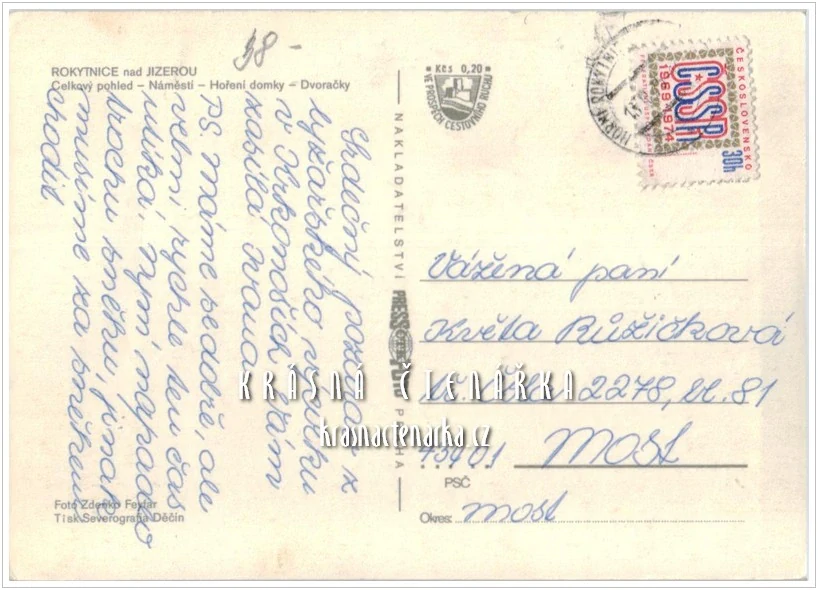 38 -
ROKYTNICE nad JIZEROU
Celkový pohled – Náměstí – Hoření domky – Dvoračky
Srdečný pozdrav z
lyžařského výcviku
v Krkonoších Vám
zasílá Ivana
PS. Máme se dobře, ale
velmi rychle ten čas
utíká, nyní napadlo
trochu sněhu, jinak
musíme za sněhem
chodit
Foto Zdenko Feyfar
Tisk Severografia Děčín
NAKLADATELSTVÍ PRESSFOTO PRAHA
Kčs 0,20
VE PROSPĚCH CESTOVNÍHO RUCHU
HORNÍ ROKYTNICE
ČESKOSLOVENSKO
ČSSR
1969 1974
30h
Vážená paní
Květa Růžičková
2278, bl. 81
43401 Most
PSČ
Okres: Most
KRÁSNÁ ČTENÁŘKA
krasnactenarka.cz